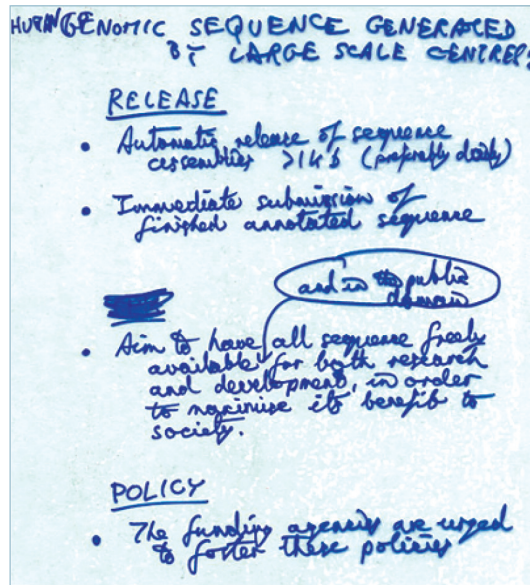 HUMAN GENOMIC SEQUENCE GENERATED
BY LARGE SCALE CENTRES
RELEASE
• Automatic release of sequence
assemblies >1kb (preferably daily)
• Immediate submission of
finished annotated sequence
and in the public
domain
• Aim to have all sequence freely
available for both research
and development, in order
to maximise its benefit to
society.
POLICY
• The funding agencies are urged
to foster these policies